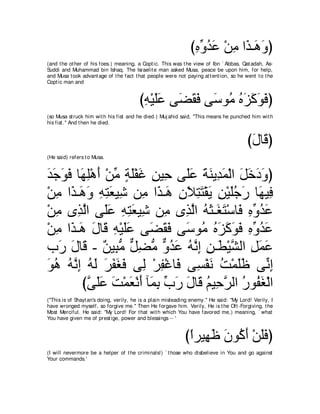 (وَهَـذَا مِنْ عَدُوِّهِ)
(and the other of his foes.) meaning, a Coptic. This was the view of Ibn `Abbas, Qatadah, As-
Suddi and Muhammad bin Ishaq. The Israelite man asked Musa, peace be upon him, for help,
and Musa took advantage of the fact that people were not paying attention, so he went to the
Coptic man and
(فَوَكَزَهُ مُوسَى فَقَضَى عَلَيْهِ)
(so Musa struck him with his fist and he died.) Mujahid said, "This means he punched him with
his fist.'' And then he died.
(قَالَ)
(He said) refers to Musa.
(وَدَخَلَ الْمَدِينَةَ عَلَى حِينِ غَفْلَةٍ مِّنْ أَهْلِهَا فَوَجَدَ
فِيهَا رَجُلَيْنِ يَقْتَتِلاَنِ هَـذَا مِن شِيعَتِهِ وَهَـذَا مِنْ
عَدُوِّهِ فَاسْتَغَـثَهُ الَّذِى مِن شِيعَتِهِ عَلَى الَّذِى مِنْ
عَدُوِّهِ فَوَكَزَهُ مُوسَى فَقَضَى عَلَيْهِ قَالَ هَـذَا مِنْ
عَمَلِ الشَّيْطَـنِ إِنَّهُ عَدُوٌّ مُّضِلٌّ مُّبِينٌ - قَالَ رَبِّ
إِنِّى ظَلَمْتُ نَفْسِى فَاغْفِرْ لِى فَغَفَرَ لَهُ إِنَّهُ هُوَ
الْغَفُورُ الرَّحِيمُ قَالَ رَبِّ بِمَآ أَنْعَمْتَ عَلَىَّ)
("This is of Shaytan's doing, verily, he is a plain misleading enemy.'' He said: "My Lord! Verily, I
have wronged myself, so forgive me.'' Then He forgave him. Verily, He is the Oft-Forgiving, the
Most Merciful. He said: "My Lord! For that with which You have favored me,) meaning, `what
You have given me of prestige, power and blessings -- '
(فَلَنْ أَكُونَ ظَهِيراً)
(I will nevermore be a helper of the criminals!) `those who disbelieve in You and go against
Your commands.'